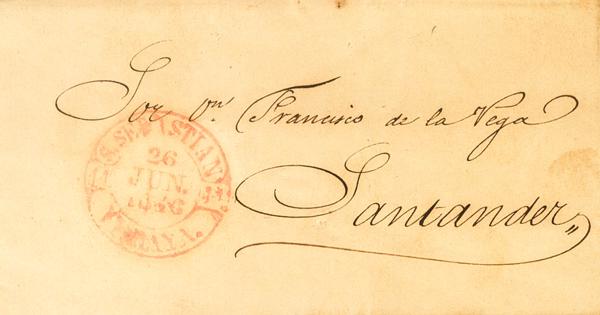 Sor Dn. Francisco de la Vega
Santander
S. SEBASTIAN
26
JUN.
1846
VIZCAYA.